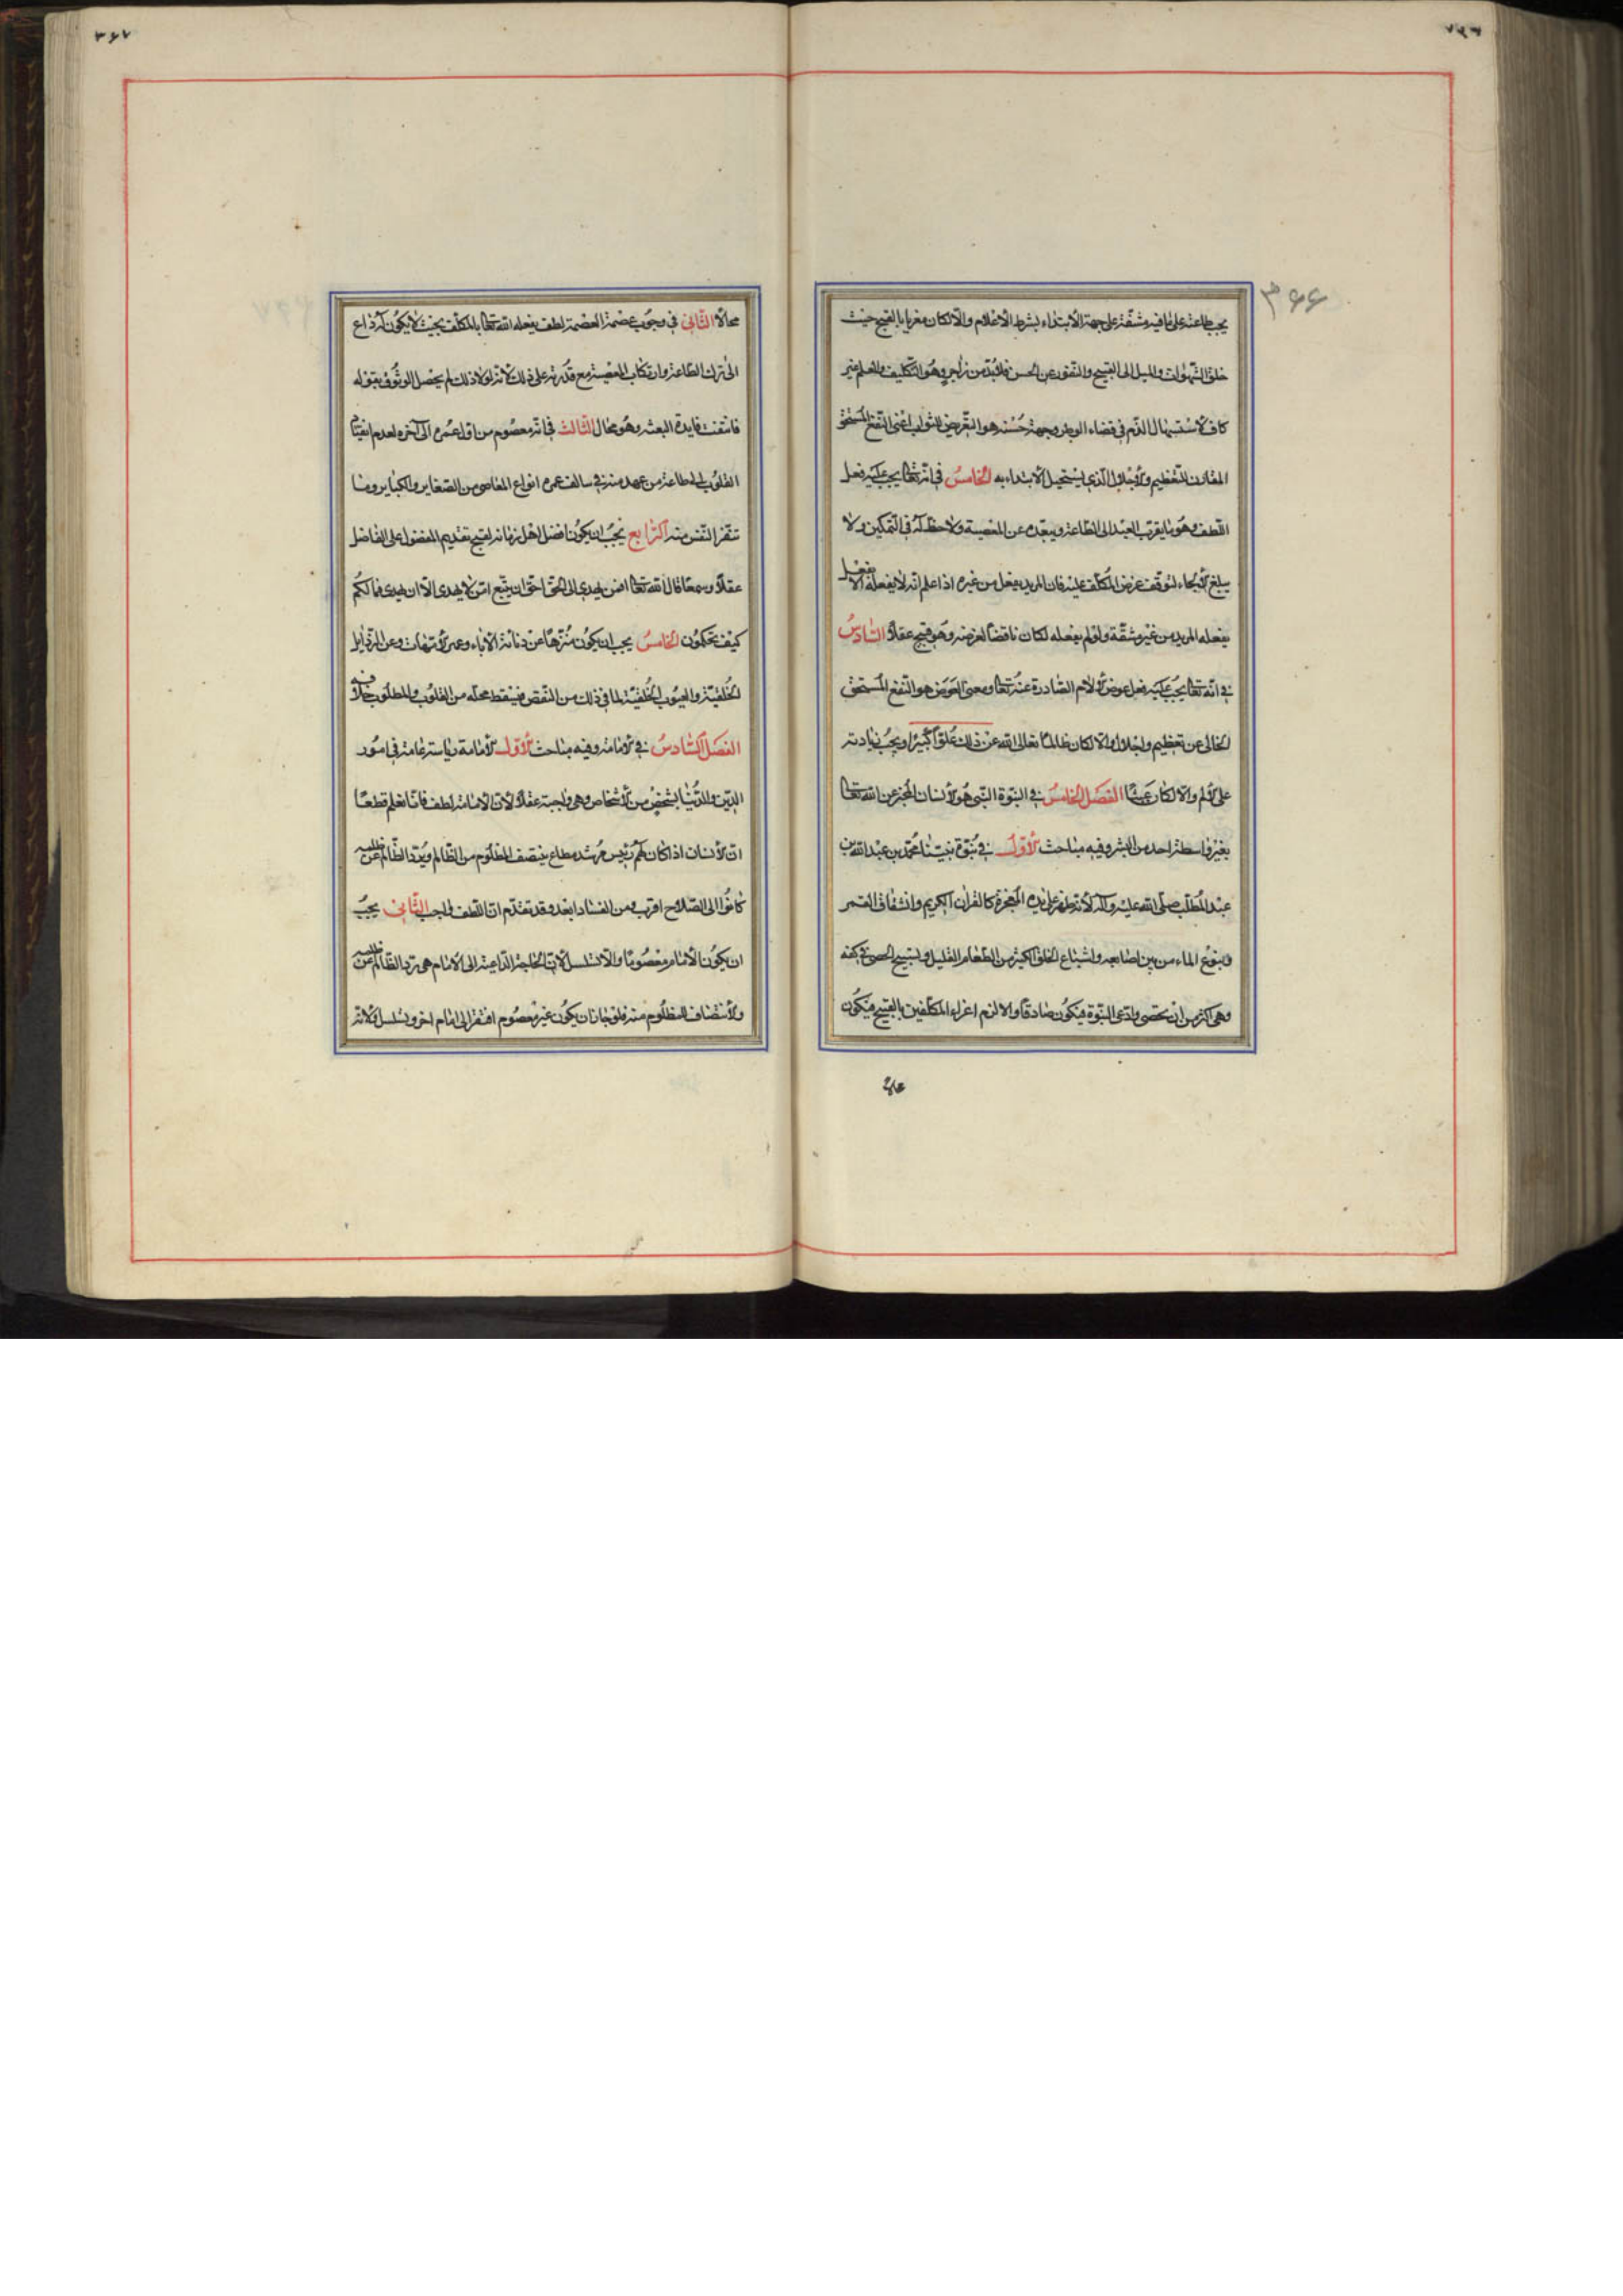 ٣٦٦
يجب طاعته على ما فيه مشقّة على جهة الابتداء بشرط الاعلام والّا لكان مغريا بالقبيح حيث
خلق الشهوات والميل الى القبيح والنفور عن الحسن فلا بدّ من زاجر وهو التكليف والعلم غير
كاف لاستسهال الذم في قضاء الوطر وجهة حسنه هو التعريض للثواب اعنى النفع المستحق
المقارن للتعظيم والاجلال الذي يستحيل الابتداء به الخامس في انّه تعالى يجب عليه فعل
اللطف وهو ما يقرب العبد الى الطاعة ويبعّده عن المعصية ولا حظ له في التمكين ولا
يبلغ الالجاء لتوقف غرض المكلف عليه فان المريد بفعل من غيره اذا علم انّه لا يفعله الا بفعل
يفعله المريد من غير مشقّة ولو لم يفعله لكان ناقضاً لغرضه وهو قبيح عقلاً السّادس
في انّه تعالى يجب عليه فعل عوض الآلام الصّادرة عنه تعالى ومعنى العوض هو النفع المستحق
الخالي عن تعظيم واجلال والّا لكان ظالمًا تعالى الله عن ذلك علوّاً كبيرًا ويجب زيادته
على الالم والّا لكان عبثًا الفصل الخامس في النبوّة النّبي هو الانسان المخبر عن الله تعالى
بغير واسطة احد من البشر وفيه مباحث الاوّل في نبوّة نبيّنا محمّد بن عبد الله بن
عبد المطّلب صلّى الله عليه وآله لانه ظهر على يده المعجزة كالقرآن الكريم وانشقاق القمر
ونبوع الماء من بين اصابعه واشباع الخلق الكثير من الطعام القليل وتسبيح الحصى في كفه
وهي اكثر من ان تحصى وادّعى النبّوة فيكون صادقًا والّا لزم اغراء المكلّفين بالقبيح فيكون
محالا
٣٦٧
محالًا الثّاني في وجوب عصمته العصمة لطف يفعله الله تعالى بالمكلّف بحيث لا يكون له داع
الى ترك الطاعة وارتكاب المعصية مع قدرته على ذلك لانه لولا ذلك لم يحصل الوثوق بقوله
فانتفت فايدة البعثة وهو محال الثّالث في انّه معصوم من اوّل عمره الى آخره لعدم انقياد
القلوب الى طاعة من عهد منه في سالف عمره انواع المعاصي من الصّغاير والكباير وما
تنفر النّفس منه الرّابع يجب ان يكون افضل اهل زمانه لقبح تقديم المفضول على الفاضل
عقلاً وسمعًا قال الله تعالى افمن يهدي الى الحق احق ان يتّبع امّن لا يهدى الّا ان يهدى فما لكم
كيف تحكمون الخامس يجب ان يكون منزّهًا عن دناءة الآباء وعهر الامّهات وعن الرّذايل
الخلقيّة والعيوب الخلقيّة لما في ذلك من النّقص فيسقط محلّه من القلوب والمطلوب خلافه
الفصل السّادس في الامامة وفيه مباحث الاوّل الامامة رياسة عامة في امور
الدّين والدّنيا لشخص من الاشخاص وهي واجبة عقلاً لانّ الامامة لطف فانّا نعلم قطعًا
انّ الانسان اذا كان لهم رئيس مرشد مطاع ينتصف للمظلوم من الظّالم ويردّ الظّالم عن ظلمه
كانوا الى الصّلاح اقرب ومن الفساد ابعد وقد تقدّم انّ اللطف واجب الثّاني يجب
ان يكون الامام معصومًا والّا تسلسل لانّ الحاجة الدّاعية الى الامام هي ردّ الظّالم عن ظلمه
والانتصاف للمظلوم منه فلو جاز ان يكون غير معصوم افتقر الى امام آخر ويتسلسل ولانّه